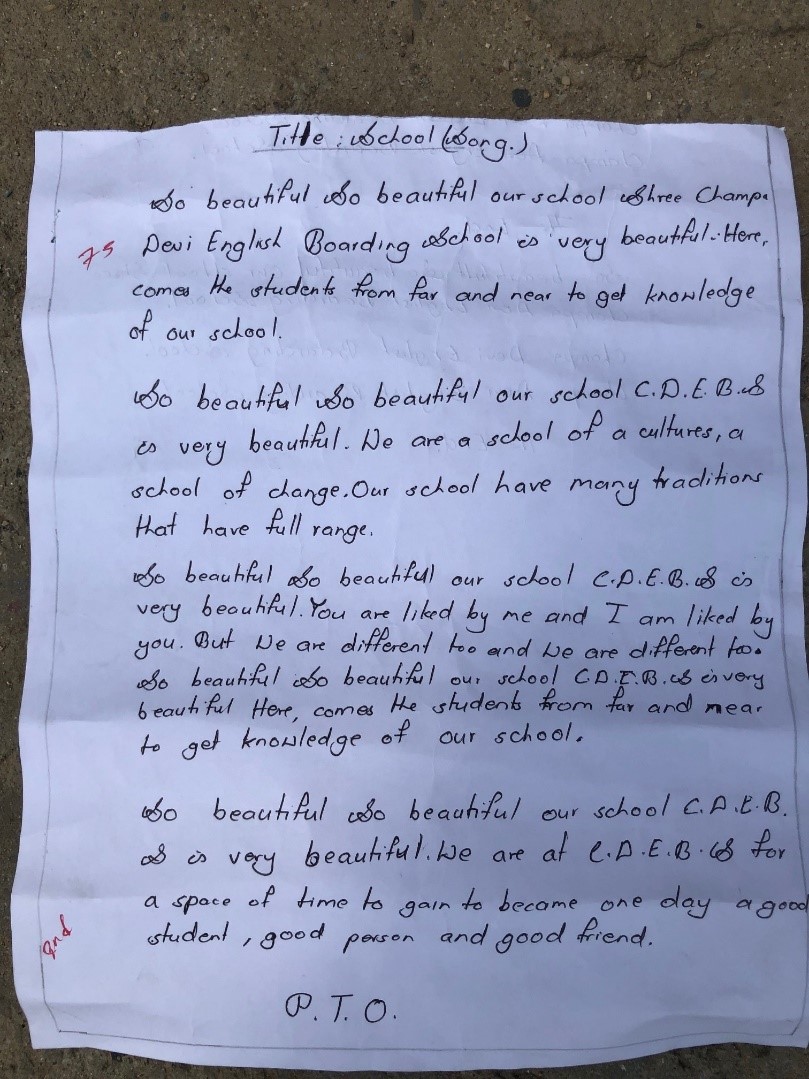 Title : School (Song.)
So beautiful So beautiful our school Shree Champa
75
Devi English Boarding School is very beautiful. Here,
comes the students from far and near to get knowledge
of our school.
So beautiful So beautiful our school C.D.E.B.S
is very beautiful. We are a school of a cultures, a
school of change. Our school have many traditions
that have full range.
So beautiful So beautiful our school C.D.E.B.S is
very beautiful. You are liked by me and I am liked by
you. But We are different too and We are different too.
So beautiful So beautiful our school C.D.E.B.S is very
beautiful Here, comes the students from far and near
to get knowledge of our school.
So beautiful So beautiful our school C.D.E.B.
S is very beautiful. We are at C.D.E.B.S for
a space of time to gain to became one day a good
2nd
student, good person and good friend.
P.T.O.